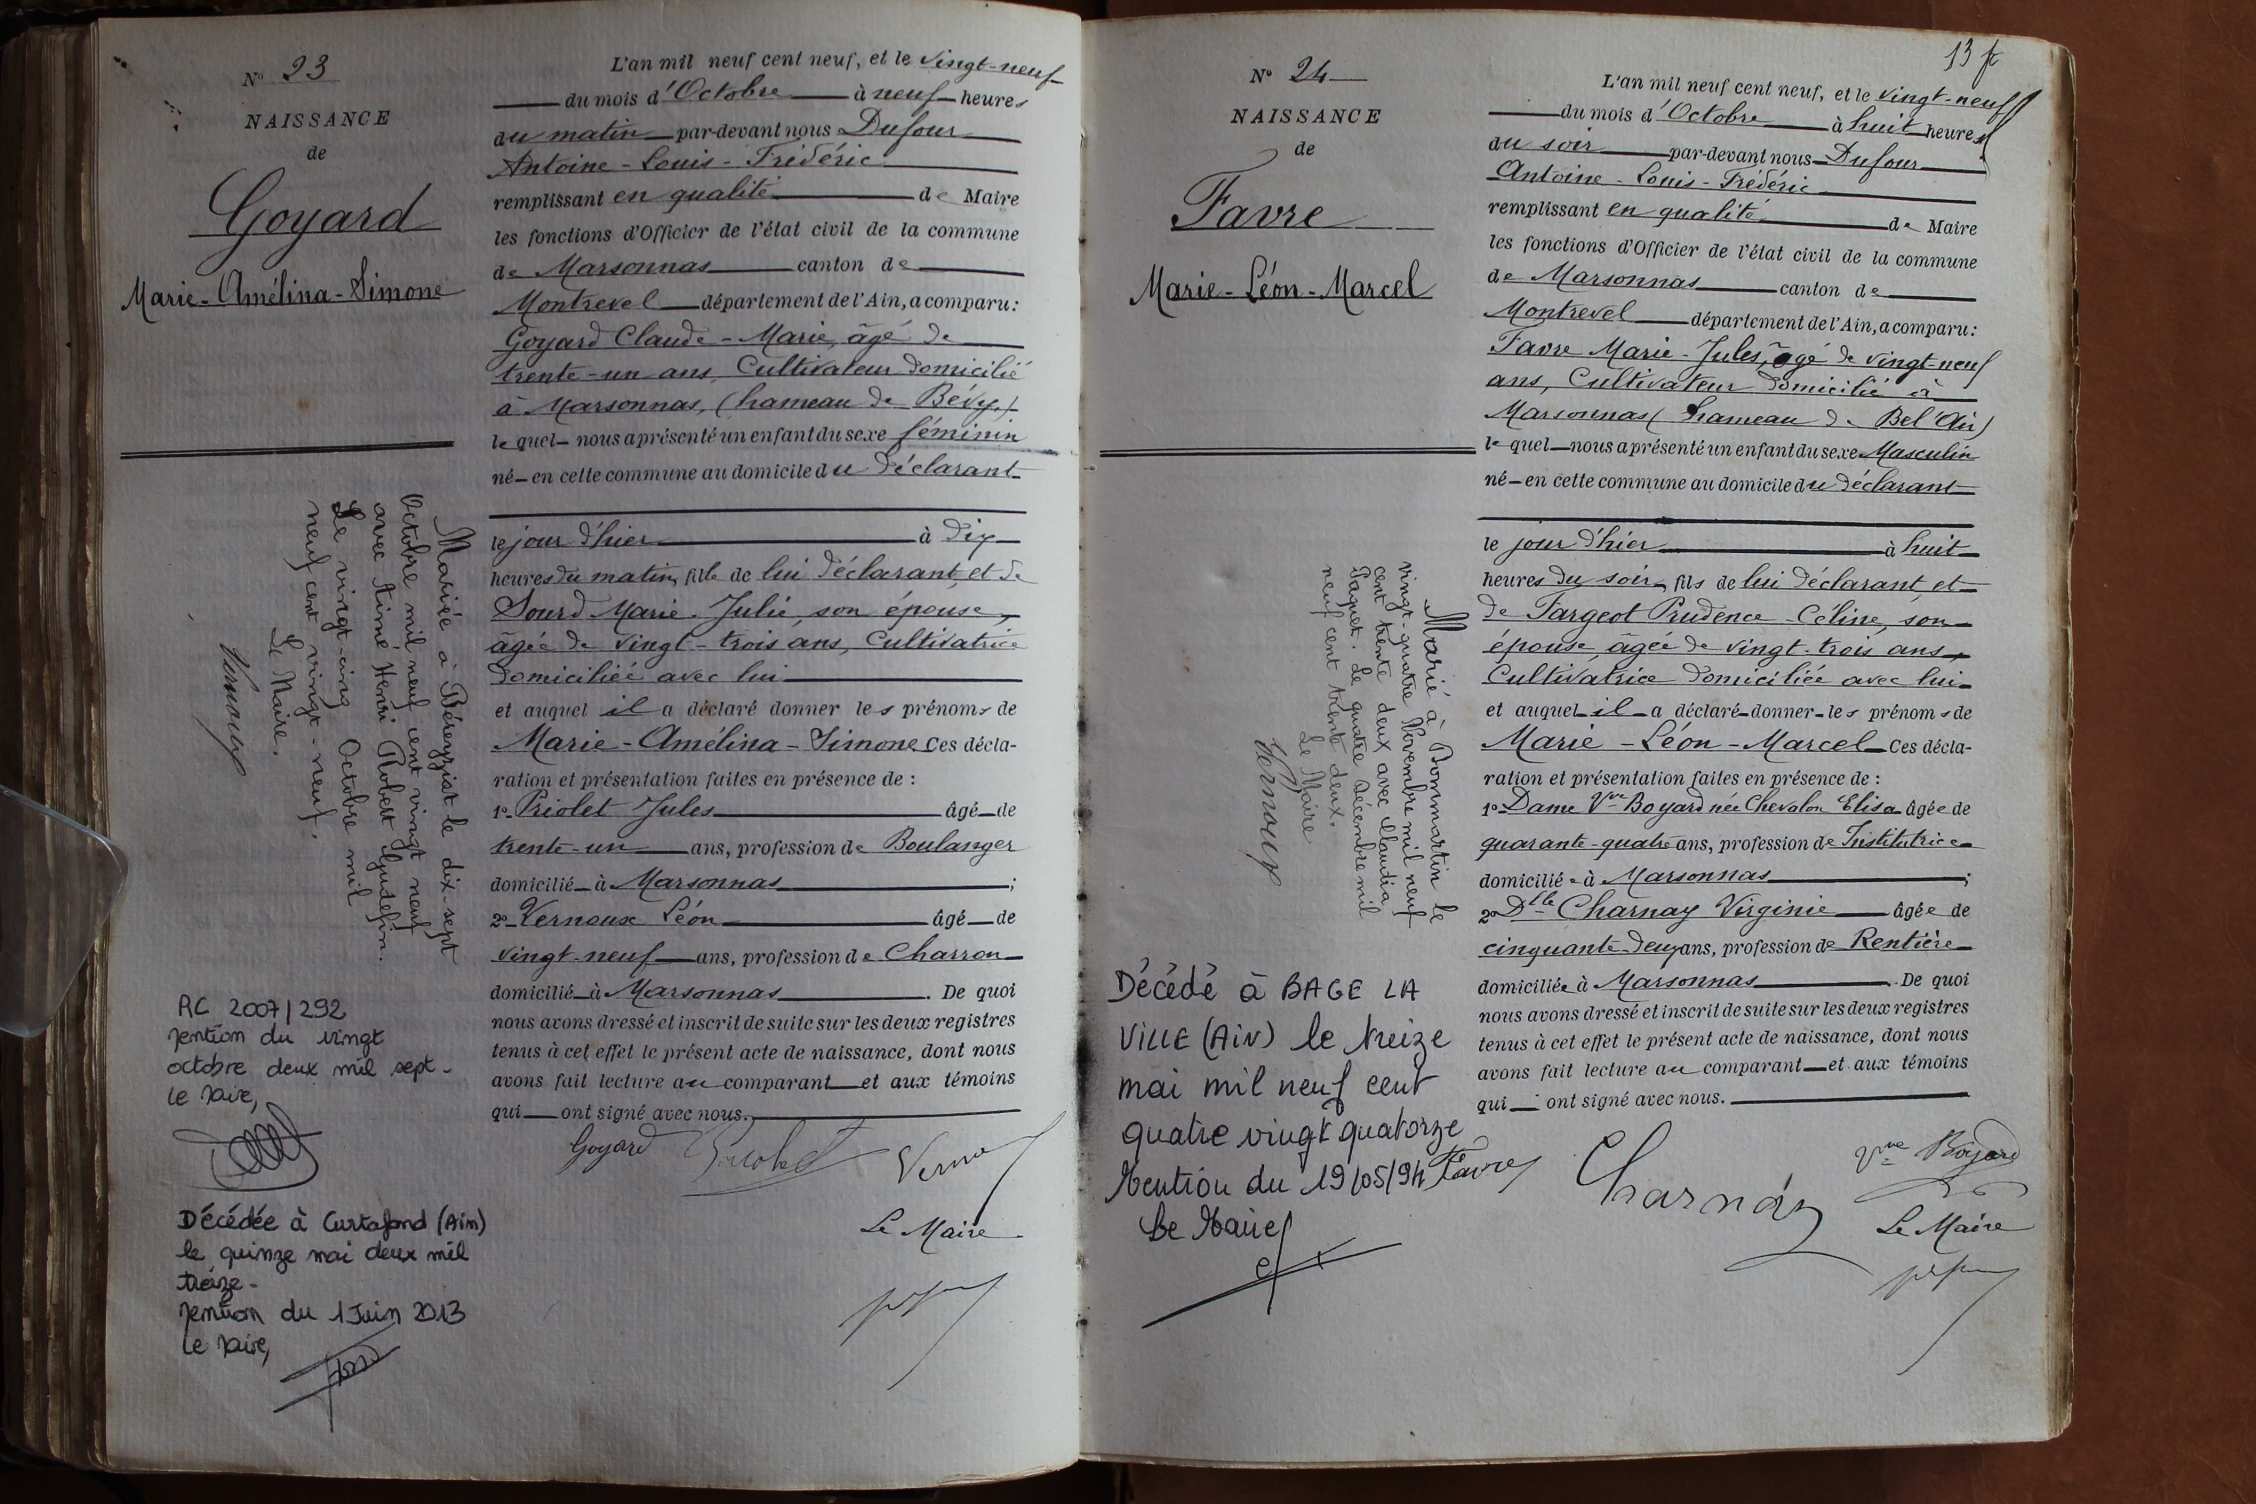 N° 23
NAISSANCE
de
Goyard
Marie-Amélina-Simone
L'an mil neuf cent neuf, et le vingt-neuf
du mois d'Octobre à neuf heures
du matin par-devant nous Dufour
Antoine-Louis-Frédéric
remplissant en qualité de Maire
les fonctions d'Officier de l'état civil de la commune
de Marsonnas canton de
Montrevel département de l'Ain, a comparu:
Goyard Claude-Marie, âgé de
trente-un ans, Cultivateur domicilié
à Marsonnas, (hameau de Bévy)
le quel nous a présenté un enfant du sexe féminin
né en cette commune au domicile du déclarant
le jour d'hier à dix
heures du matin, fille de lui déclarant, et de
Sourd Marie-Julie, son épouse,
âgée de vingt-trois ans, Cultivatrice
domiciliée avec lui
et auquel il a déclaré donner les prénoms de
Marie-Amélina-Simone Ces décla-
ration et présentation faites en présence de :
1° Priolet Jules âgé de
trente-un ans, profession de Boulanger
domicilié à Marsonnas ;
2° Vernoux Léon âgé de
vingt-neuf ans, profession de Charron
domicilié à Marsonnas . De quoi
nous avons dressé et inscrit de suite sur les deux registres
tenus à cet effet le présent acte de naissance, dont nous
avons fait lecture au comparant et aux témoins
qui ont signé avec nous.
Goyard
Le Maire
Mariée à Béreyziat le dix-sept
Octobre mil neuf cent vingt neuf
avec Aimé Henri Robert
Le vingt-cinq Octobre mil
neuf cent vingt-neuf.
Le Maire.
Vernoux
RC 2007/292
Mention du vingt
octobre deux mil sept-
le Maire,
Décédée à Curtafond (Ain)
le quinze mai deux mil
treize-
Mention du 1 Juin 2013
le Maire,
13
N° 24
NAISSANCE
de
Favre
Marie-Léon-Marcel
L'an mil neuf cent neuf, et le vingt-neuf
du mois d'Octobre à huit heures
du soir par-devant nous Dufour
Antoine-Louis-Frédéric
remplissant en qualité de Maire
les fonctions d'Officier de l'état civil de la commune
de Marsonnas canton de
Montrevel département de l'Ain, a comparu:
Favre Marie-Jules, âgé de vingt-neuf
ans, Cultivateur domicilié à
Marsonnas (hameau de Bel'Air)
le quel nous a présenté un enfant du sexe Masculin
né en cette commune au domicile du déclarant
le jour d'hier à huit
heures du soir, fils de lui déclarant, et
de Fargeot Prudence-Céline, son
épouse, âgée de vingt-trois ans,
Cultivatrice domiciliée avec lui
et auquel il a déclaré donner les prénoms de
Marie-Léon-Marcel Ces décla-
ration et présentation faites en présence de :
1° Dame Vve Boyard née Chevalon Elisa âgée de
quarante-quatre ans, profession de Institutrice
domiciliée à Marsonnas ;
2° Dlle Charnay Virginie âgée de
cinquante-deux ans, profession de Rentière
domiciliée à Marsonnas . De quoi
nous avons dressé et inscrit de suite sur les deux registres
tenus à cet effet le présent acte de naissance, dont nous
avons fait lecture au comparant et aux témoins
qui ont signé avec nous.
Favre
Charnay
Vve Boyard
Le Maire
Marié à Dommartin le
vingt-quatre Novembre mil neuf
cent trente deux avec Claudia
Paquet. Le quatre Décembre mil
neuf cent trente deux.
Le Maire
Vernoux
Décédé à BAGE LA
VILLE (AIN) le treize
mai mil neuf cent
quatre vingt quatorze
Mention du 19/05/94
Le Maire